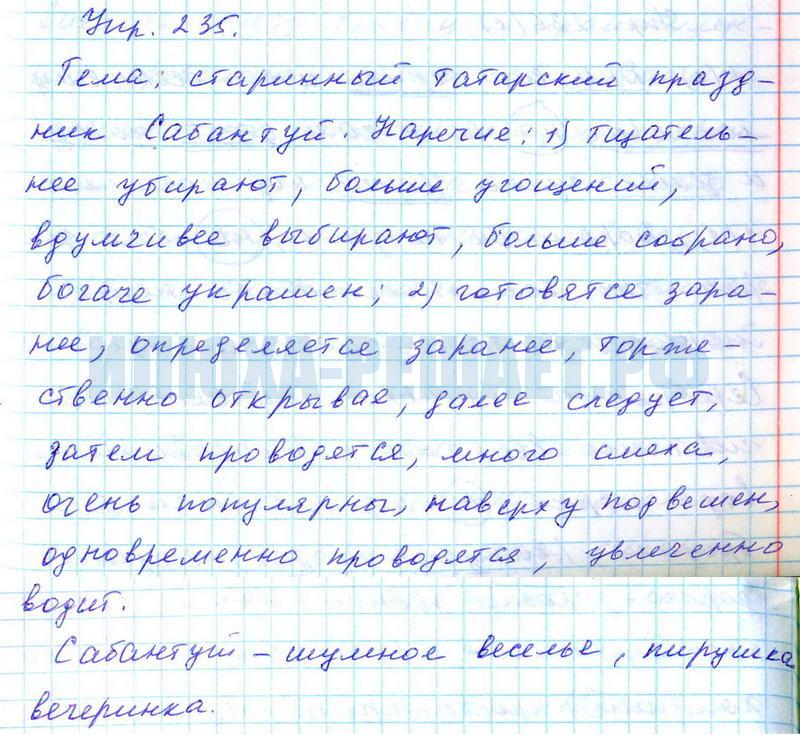 Упр. 235.
Тема: старинный татарский празд-
ник Сабантуй. Наречие: 1) тщатель-
нее убирают, больше угощений,
вдумчивее выбирают, больше собрано,
богаче украшен; 2) готовятся зара-
нее, определяется заранее, торже-
ственно открывая, далее следует,
затем проводятся, много смеха,
очень популярны, наверху подвешен,
одновременно проводятся, увлеченно
водит.
Сабантуй – шумное веселье, пирушка
вечеринка.
ИЛЮХА-РЕШАЕТ.РФ